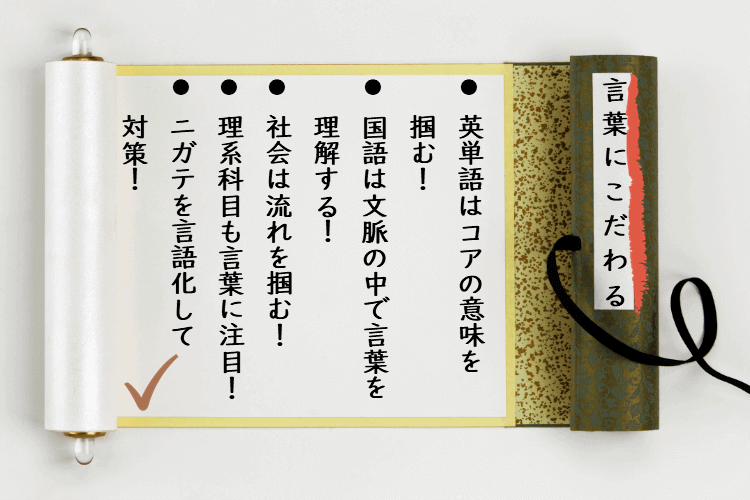 言葉にこだわる
●英単語はコアの意味を
掴む！
●国語は文脈の中で言葉を
理解する！
●社会は流れを掴む！
●理系科目も言葉に注目！
●ニガテを言語化して
対策！